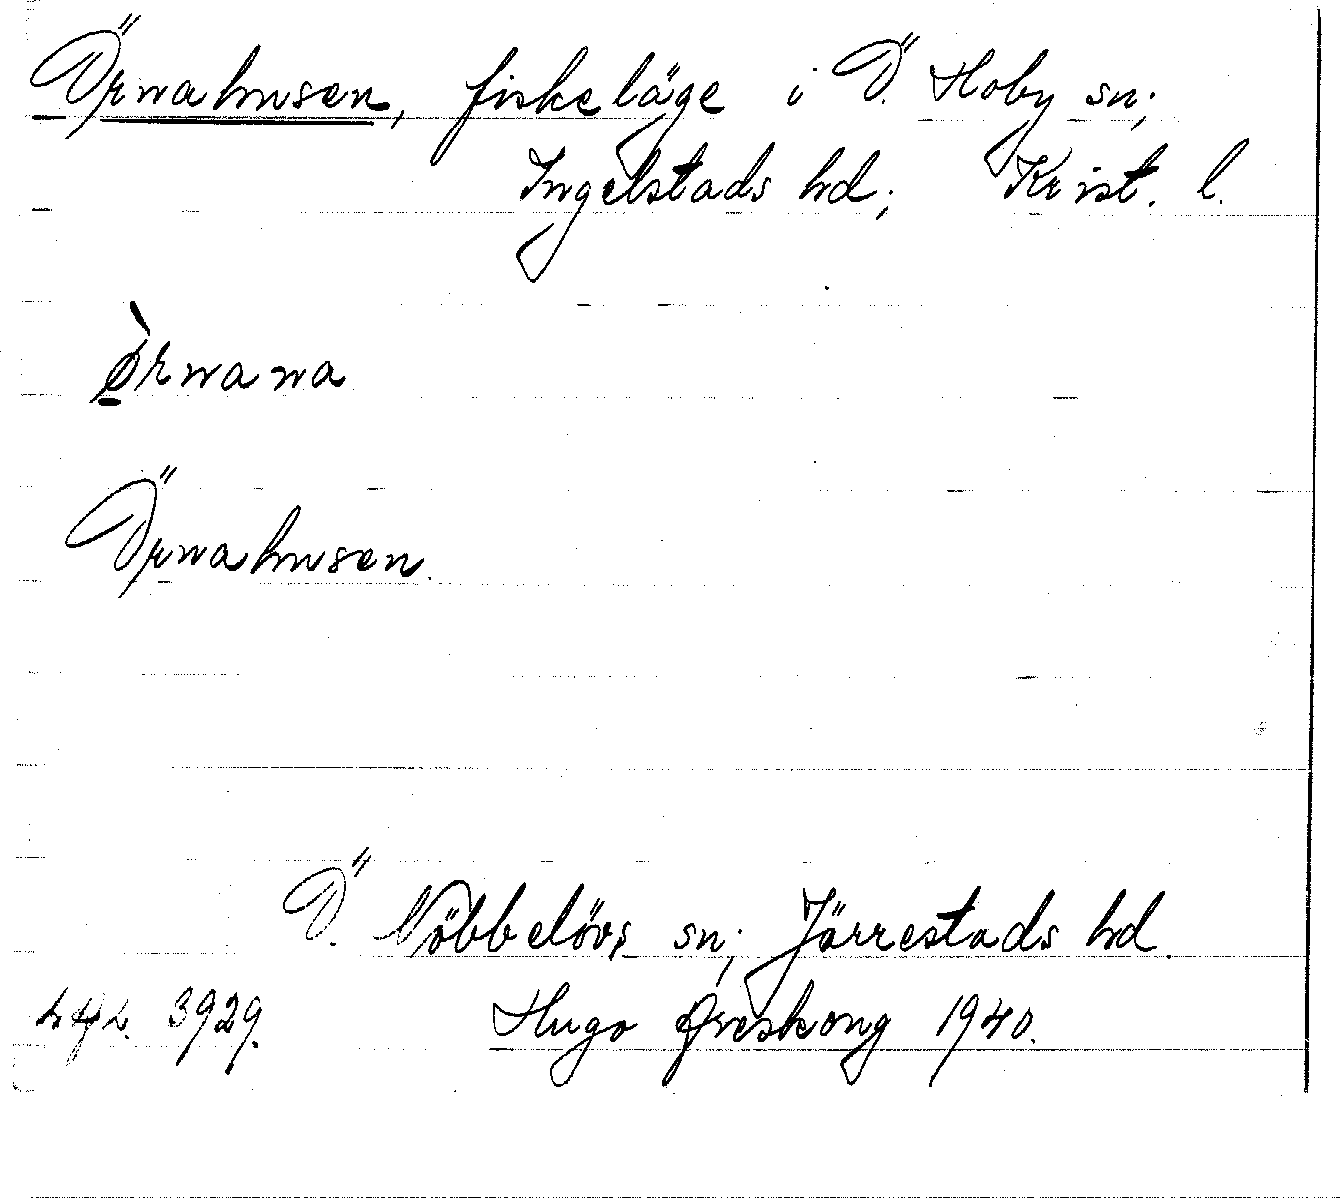 Örnahusen, fiskeläge i Ö. Hoby sn;
Ingelstads hd; Krist. l.
Örnahusen.
Ö. Nöbbelövs sn; Järrestads hd.
3929. Hugo Areskoug 1940.